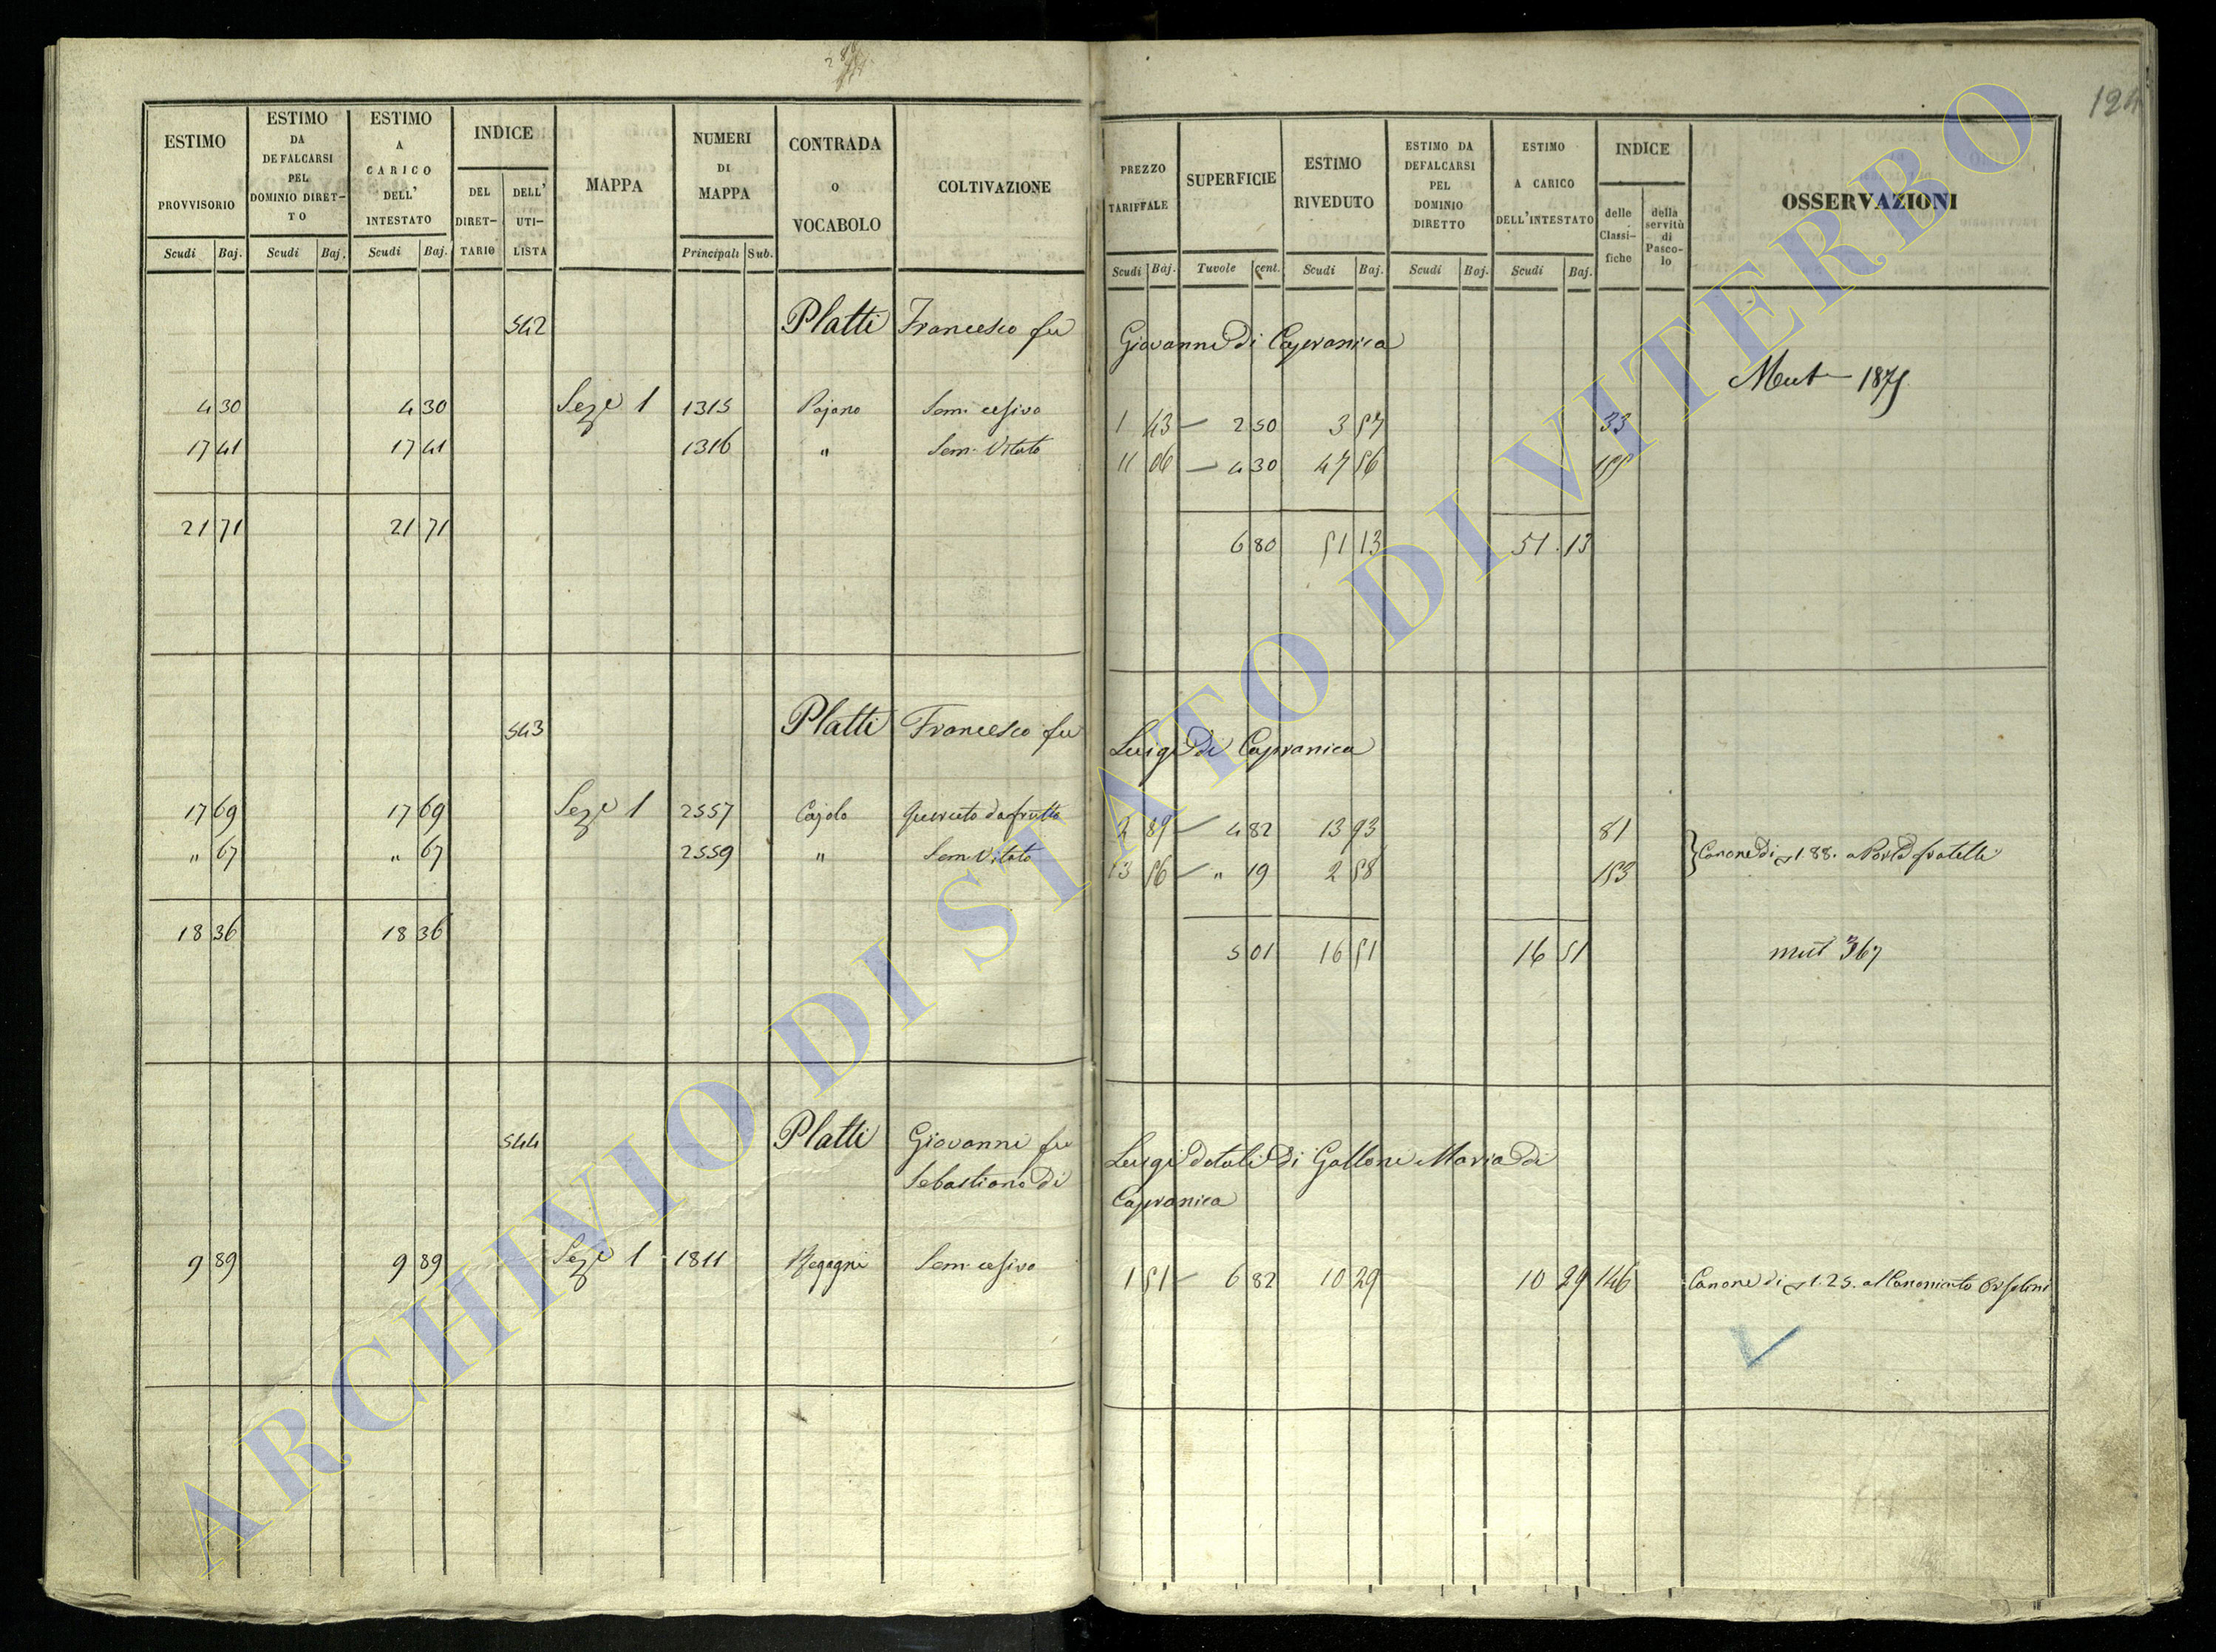 124
ESTIMO PROVVISORIO
ESTIMO DA DEFALCARSI PEL DOMINIO DIRET-TO
ESTIMO A CARICO DELL' INTESTATO
INDICE
DEL DIRET-TARIO
DELL' UTI-LISTA
MAPPA
NUMERI DI MAPPA
CONTRADA o VOCABOLO
COLTIVAZIONE
PREZZO TARIFFALE
SUPERFICIE
ESTIMO RIVEDUTO
ESTIMO DA DEFALCARSI PEL DOMINIO DIRETTO
ESTIMO A CARICO DELL'INTESTATO
INDICE
delle Classi-fiche
della servitù di Pasco-lo
OSSERVAZIONI
Scudi Baj. Scudi Baj. Scudi Baj. Principali Sub. Scudi Baj. Tavole cent. Scudi Baj. Scudi Baj. Scudi Baj.
542 Platti Francesco fu Giovanni Di Capranica
Mut 1875
4 30 4 30 Seze 1 1315 Pojano Sem. cesivo 1 43 2 50 3 57 33
17 41 17 41 1316 " Sem. Vitato 11 06 4 30 47 56 155
21 71 21 71 6 80 51 13 51 . 13
543 Platti Francesco fu Luigi Di Capranica
17 69 17 69 Seze 1 2557 Cajolo Querceto da frutto 2 89 4 82 13 93 81
" 67 " 67 2559 " Sem. Vitato 13 56 " 19 2 58 153
} Canone Di 1.88. a fratelli
18 36 18 36 5 01 16 51 16 51 mut 367
544 Platti Giovanni fu Luigi dotali Di Gallone Maria Di
Sebastiano Di Capranica
9 89 9 89 Seze 1 1811 Sem. cesivo 1 51 6 82 10 29 10 29 146 Canone di 1.25. al Canonicato Orsolini
ARCHIVIO DI STATO DI VITERBO